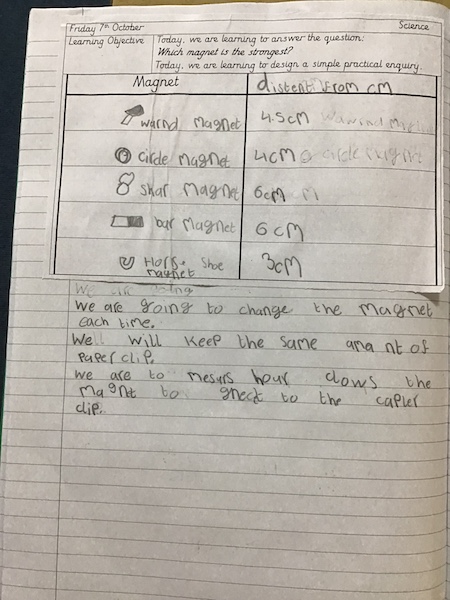 Friday 7th October Science
Learning Objective Today, we are learning to answer the question:
Which magnet is the strongest?
Today, we are learning to design a simple practical enquiry.
Magnet distent from cm
warnd magnet 4.5cm
circle magnet 4cm
skar magnet 6cm
bar magnet 6cm
Horse shoe 3cm
magnet
We are going
We are going to change the magnet
each time.
We will keep the same of
paper clip.
we are to mesurs hour clows the
magnt to to the
clip.